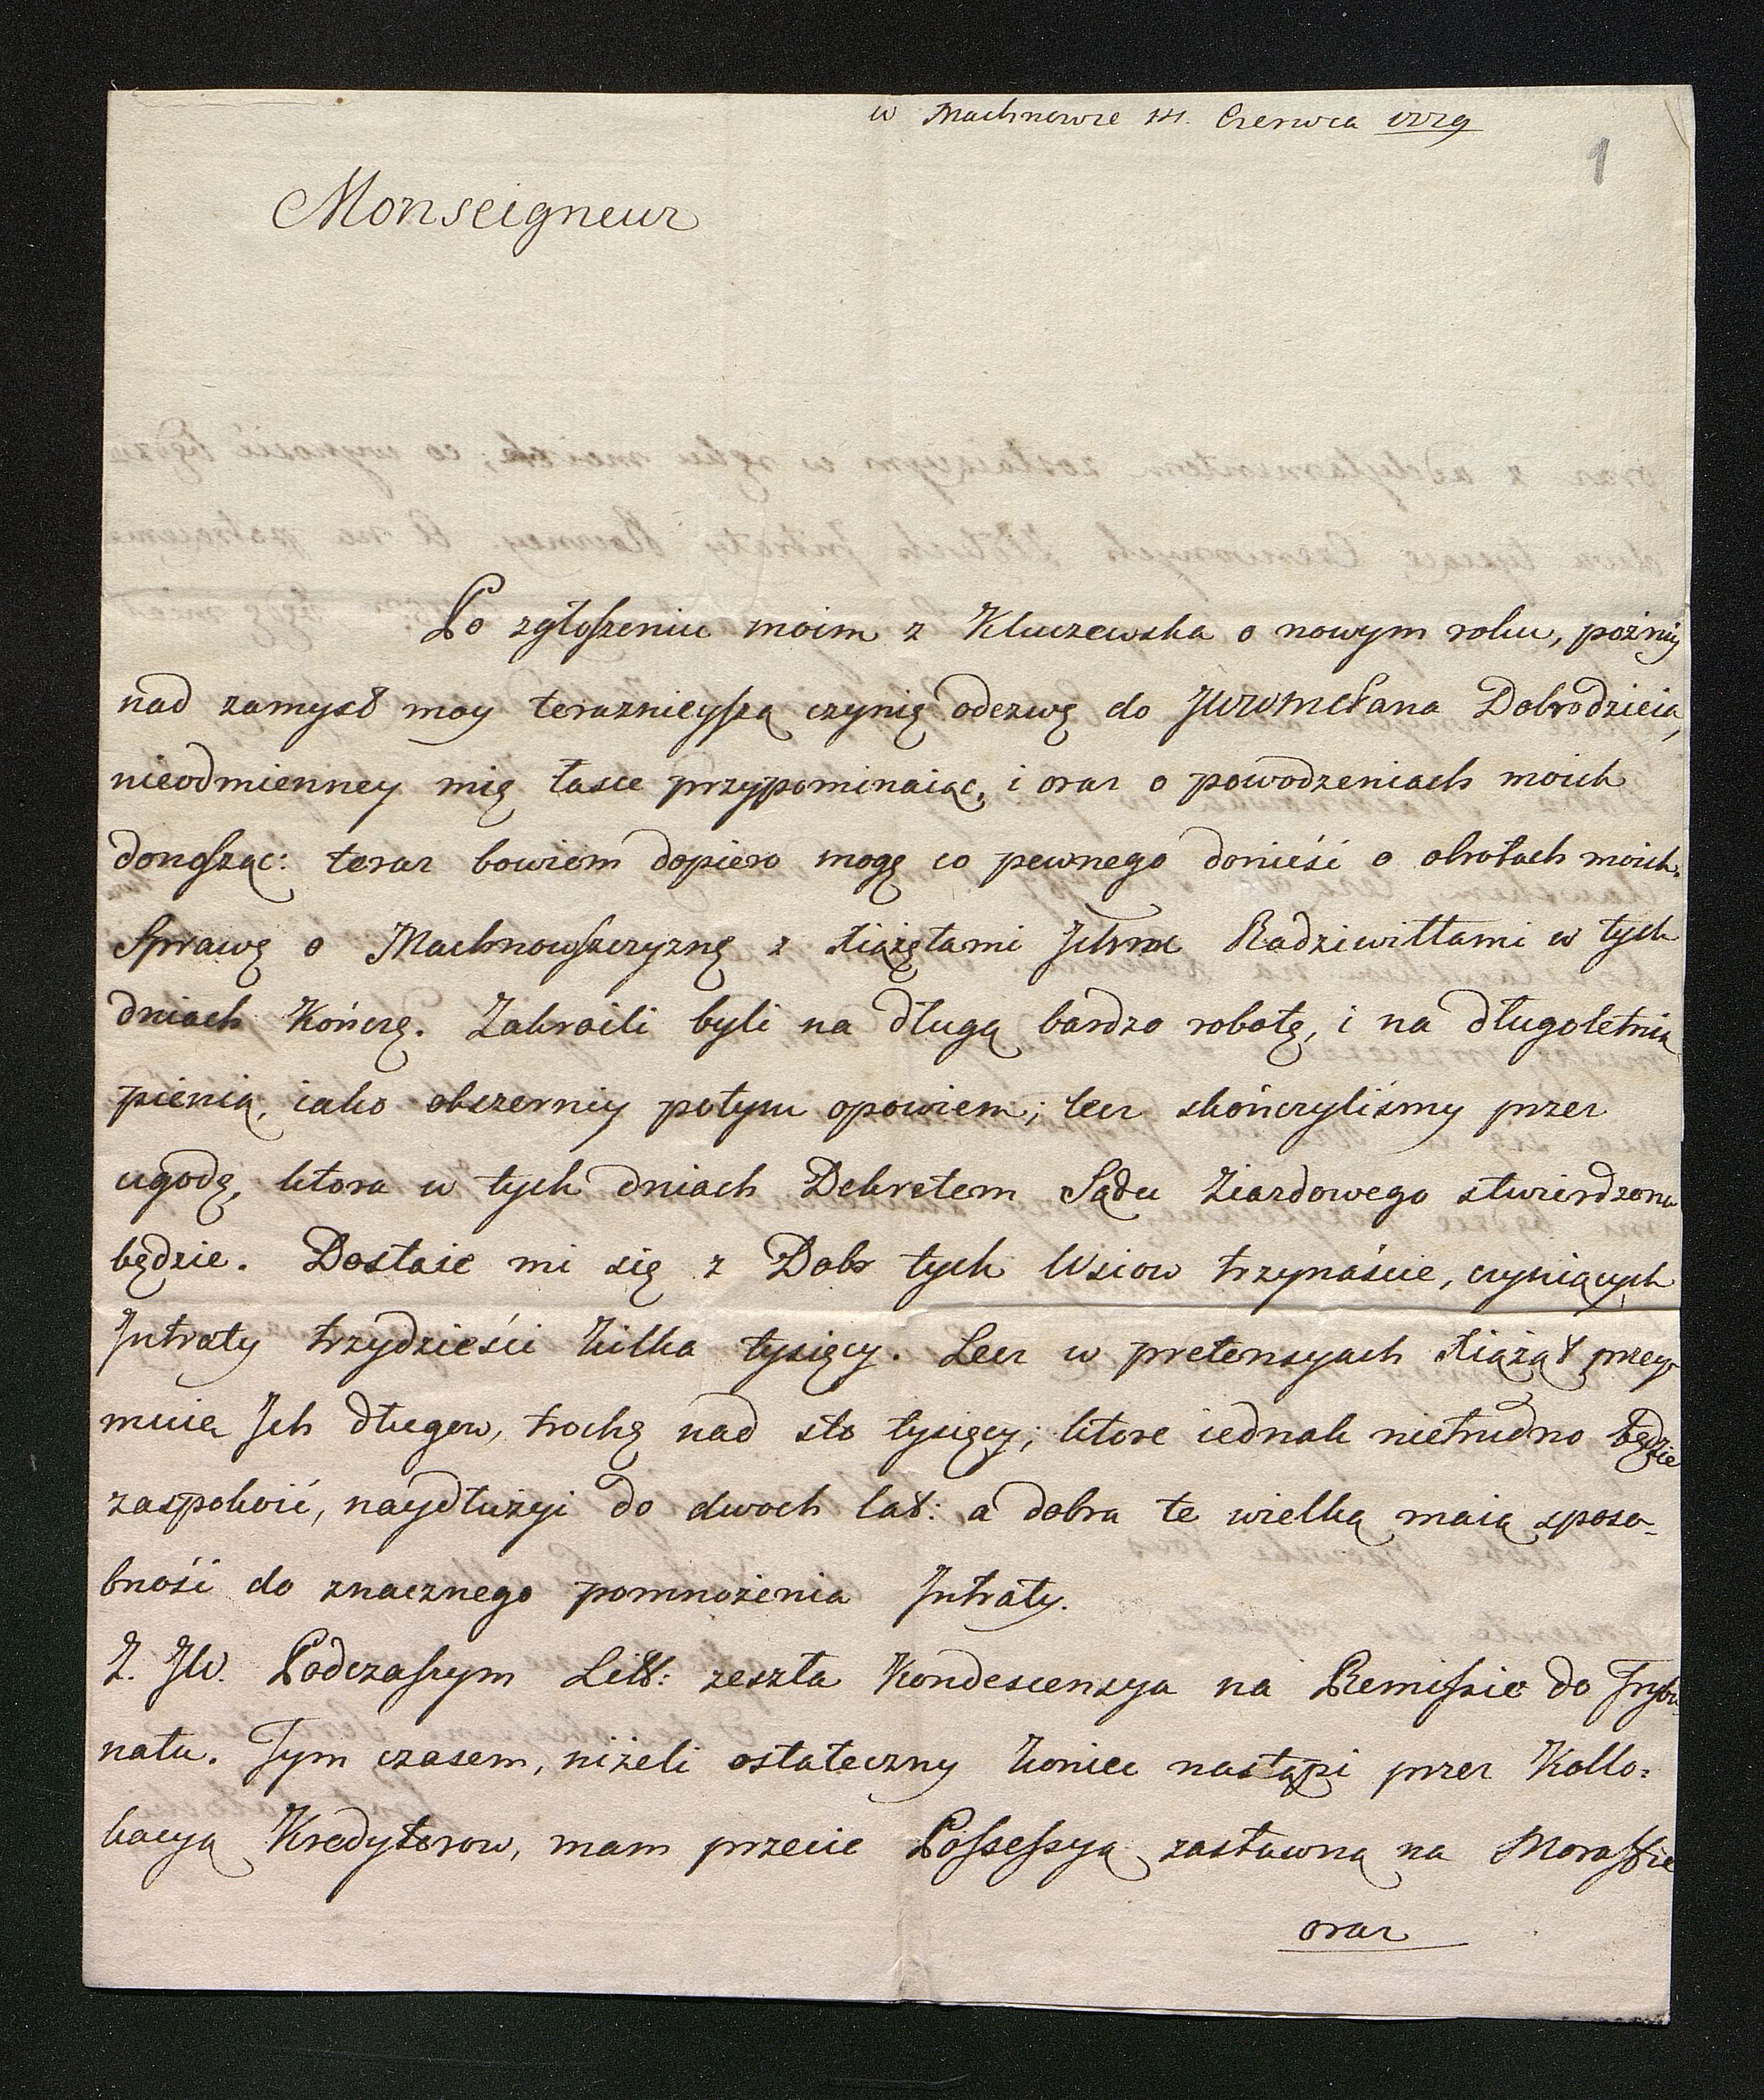 w Machnowce 14. Czerwca 1779
1
Monseigneur
Po zgłoszeniu moim z Kluczewska o nowym roku, poźniey
nad zamysł moy teraznieyszą czynię odezwę do Dobrodzieia,
nieodmienney mię łasce przypominaiąc, i oraz o powodzeniach moich
donosząc: teraz bowiem dopiero mogę co pewnego donieść o obrotach moich.
Sprawę o Machnowszczyznę z Xiążętami Ichmć Radziwiłłami w tych
dniach Kończę. Zakroili byli na długą bardzo robotę, i na długoletnią
pienią, iako obszerniey potym opowiem; lecz skończyliśmy przez
ugodę, ktora w tych dniach Dekretem Sądu Ziazdowego stwierdzona
będzie. Dostaie mi się z Dobr tych Wsiow trzynaście, czyniących
Intraty trzydzieści kilka tysięcy. Lecz w pretensyach Xiążąt przey-
muię Ich długow, trochę nad sto tysięcy; ktore iednak nietrudno będzie
zaspokoić, naydłużyi do dwoch lat: a dobra te wielką maią sposo-
bność do znacznego pomnożenia Intraty.
Z. JW. Podczaszym Litt: zeszła Kondescensya na Remissie do Trybu-
nału. Tym czasem, niżeli ostateczny koniec nastąpi przez Kollo-
kacyą Kredytorow, mam przecie Possessyą zastawną na
oraz